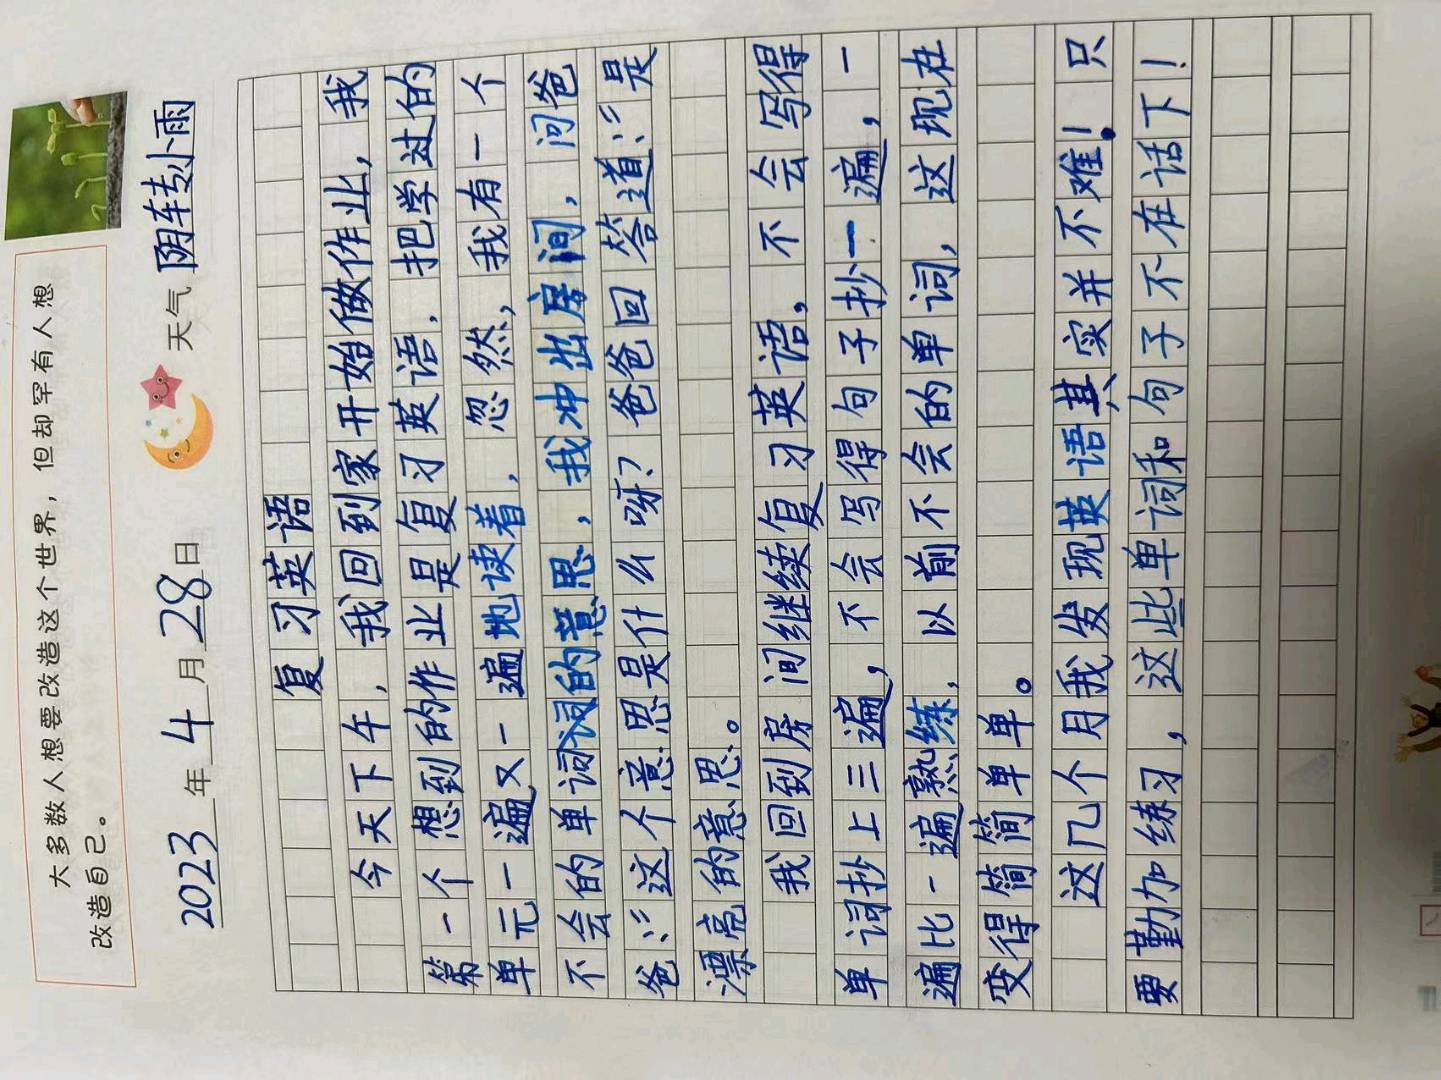 大多数人想要改造这个世界，但却罕有人想
改造自己。
2023年4月28日 天气 阴转小雨
复习英语
今天下午，我回到家开始做作业，我
第一个想到的作业是复习英语，把学过的
单元一遍又一遍地读着，忽然，我有一个
不会的单词词的意思，我冲出房间，问爸
爸："这个意思是什么呀？爸爸回答道："是
漂亮的意思。
我回到房间继续复习英语，不会写得
单词抄上三遍，不会写得句子抄一遍，一
遍比一遍熟练，以前不会的单词，这现在
变得简简单单。
这几个月我发现英语其实并不难！只
要勤加练习，这些单词和句子不在话下！